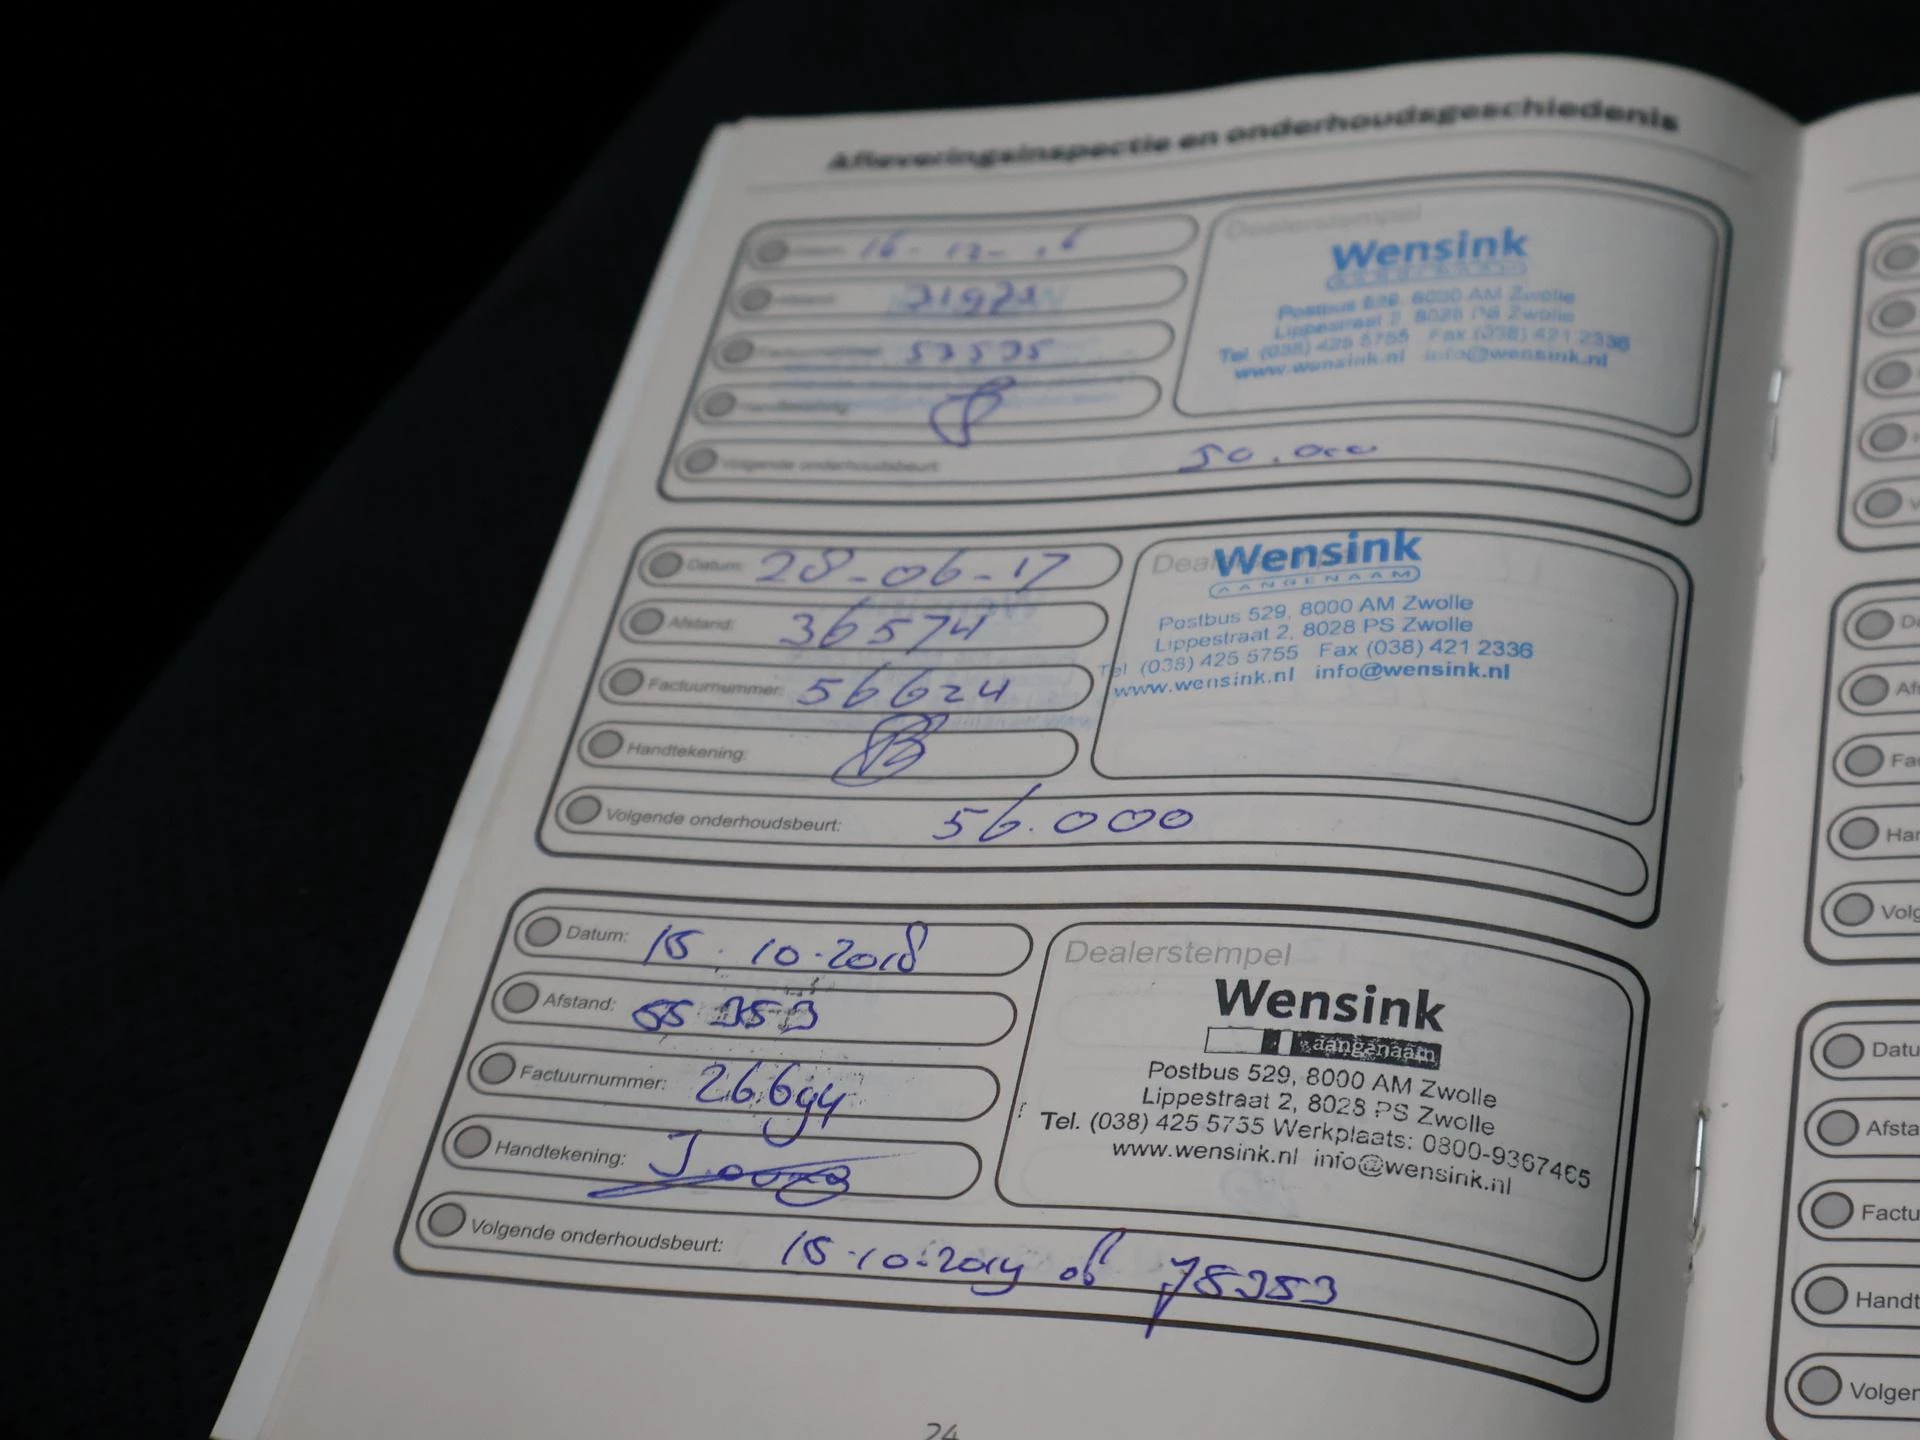 Afleveringsinspectie en onderhoudsgeschiedenis
Dealerstempel
16-12-
Wensink
Postbus 529, 8000 AM Zwolle
Lippestraat 2, 8028 PS Zwolle
Tel. (038) 425 5755 Fax (038) 421 2336
www.wensink.nl info@wensink.nl
53535
Volgende onderhoudsbeurt: 50.000
Datum: 28-06-17
Afstand: 36574
Factuurnummer: 56624
Handtekening:
Wensink
AANGENAAM
Postbus 529, 8000 AM Zwolle
Lippestraat 2, 8028 PS Zwolle
Tel (038) 425 5755 Fax (038) 421 2336
www.wensink.nl info@wensink.nl
Volgende onderhoudsbeurt: 56.000
Datum: 15.10.2018
Afstand: 55353
Factuurnummer: 26694
Handtekening:
Dealerstempel
Wensink
aangenaam
Postbus 529, 8000 AM Zwolle
Lippestraat 2, 8028 PS Zwolle
Tel. (038) 425 5755 Werkplaats: 0800-9367465
www.wensink.nl info@wensink.nl
Volgende onderhoudsbeurt: 15.10.2019 of 75353
24
Datu
Afsta
Factu
Handt
Volgen